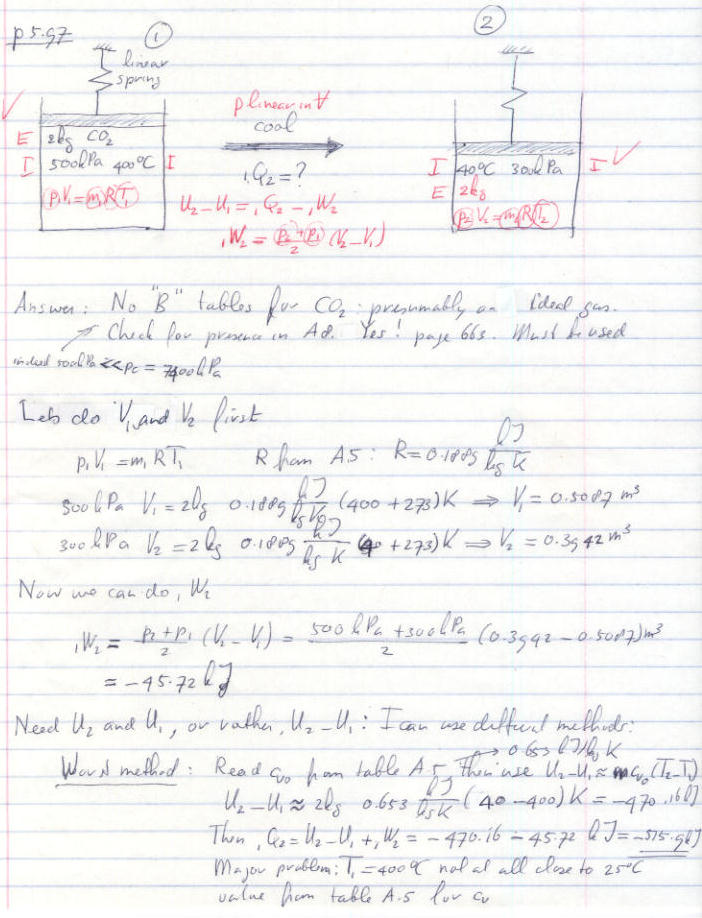 p 5.97
①
②
linear
spring
p linear in V
cool
₁Q₂ = ?
U₂ - U₁ = ₁Q₂ - ₁W₂
₁W₂ = (p₂ + p₁)/2 (V₂ - V₁)
V
E 2kg CO₂
I 500kPa 400°C I
p₁V₁ = m₁RT₁
I 40°C 300kPa I V
E 2kg
p₂V₂ = m₂RT₂
Answer: No "B" tables for CO₂: presumably an ideal gas.
Check for presence in A8. Yes! page 663. Must be used
indeed 500kPa << pc = 7400kPa
Lets do V₁ and V₂ first
p₁V₁ = m₁RT₁ R from A.5: R = 0.1889 kJ/kg K
500kPa V₁ = 2kg 0.1889 kJ/kg K (400 + 273)K ⇒ V₁ = 0.5087 m³
300kPa V₂ = 2kg 0.1889 kJ/kg K (40 + 273)K ⇒ V₂ = 0.3942 m³
Now we can do ₁W₂
₁W₂ = (p₂ + p₁)/2 (V₂ - V₁) = (500kPa + 300kPa)/2 (0.3942 - 0.5087)m³
= -45.72 kJ
Need U₂ and U₁, or rather, U₂ - U₁: I can use different methods:
→ 0.653 kJ/kg K
Worst method: Read cv0 from table A.5. Then use U₂-U₁ ≈ mcv0(T₂-T₁)
U₂-U₁ ≈ 2kg 0.653 kJ/kg K (40 - 400)K = -470.16 kJ
Then ₁Q₂ = U₂-U₁ + ₁W₂ = -470.16 - 45.72 kJ = -515.9kJ
Major problem: T₁ = 400°C not at all close to 25°C
value from table A.5 for cv